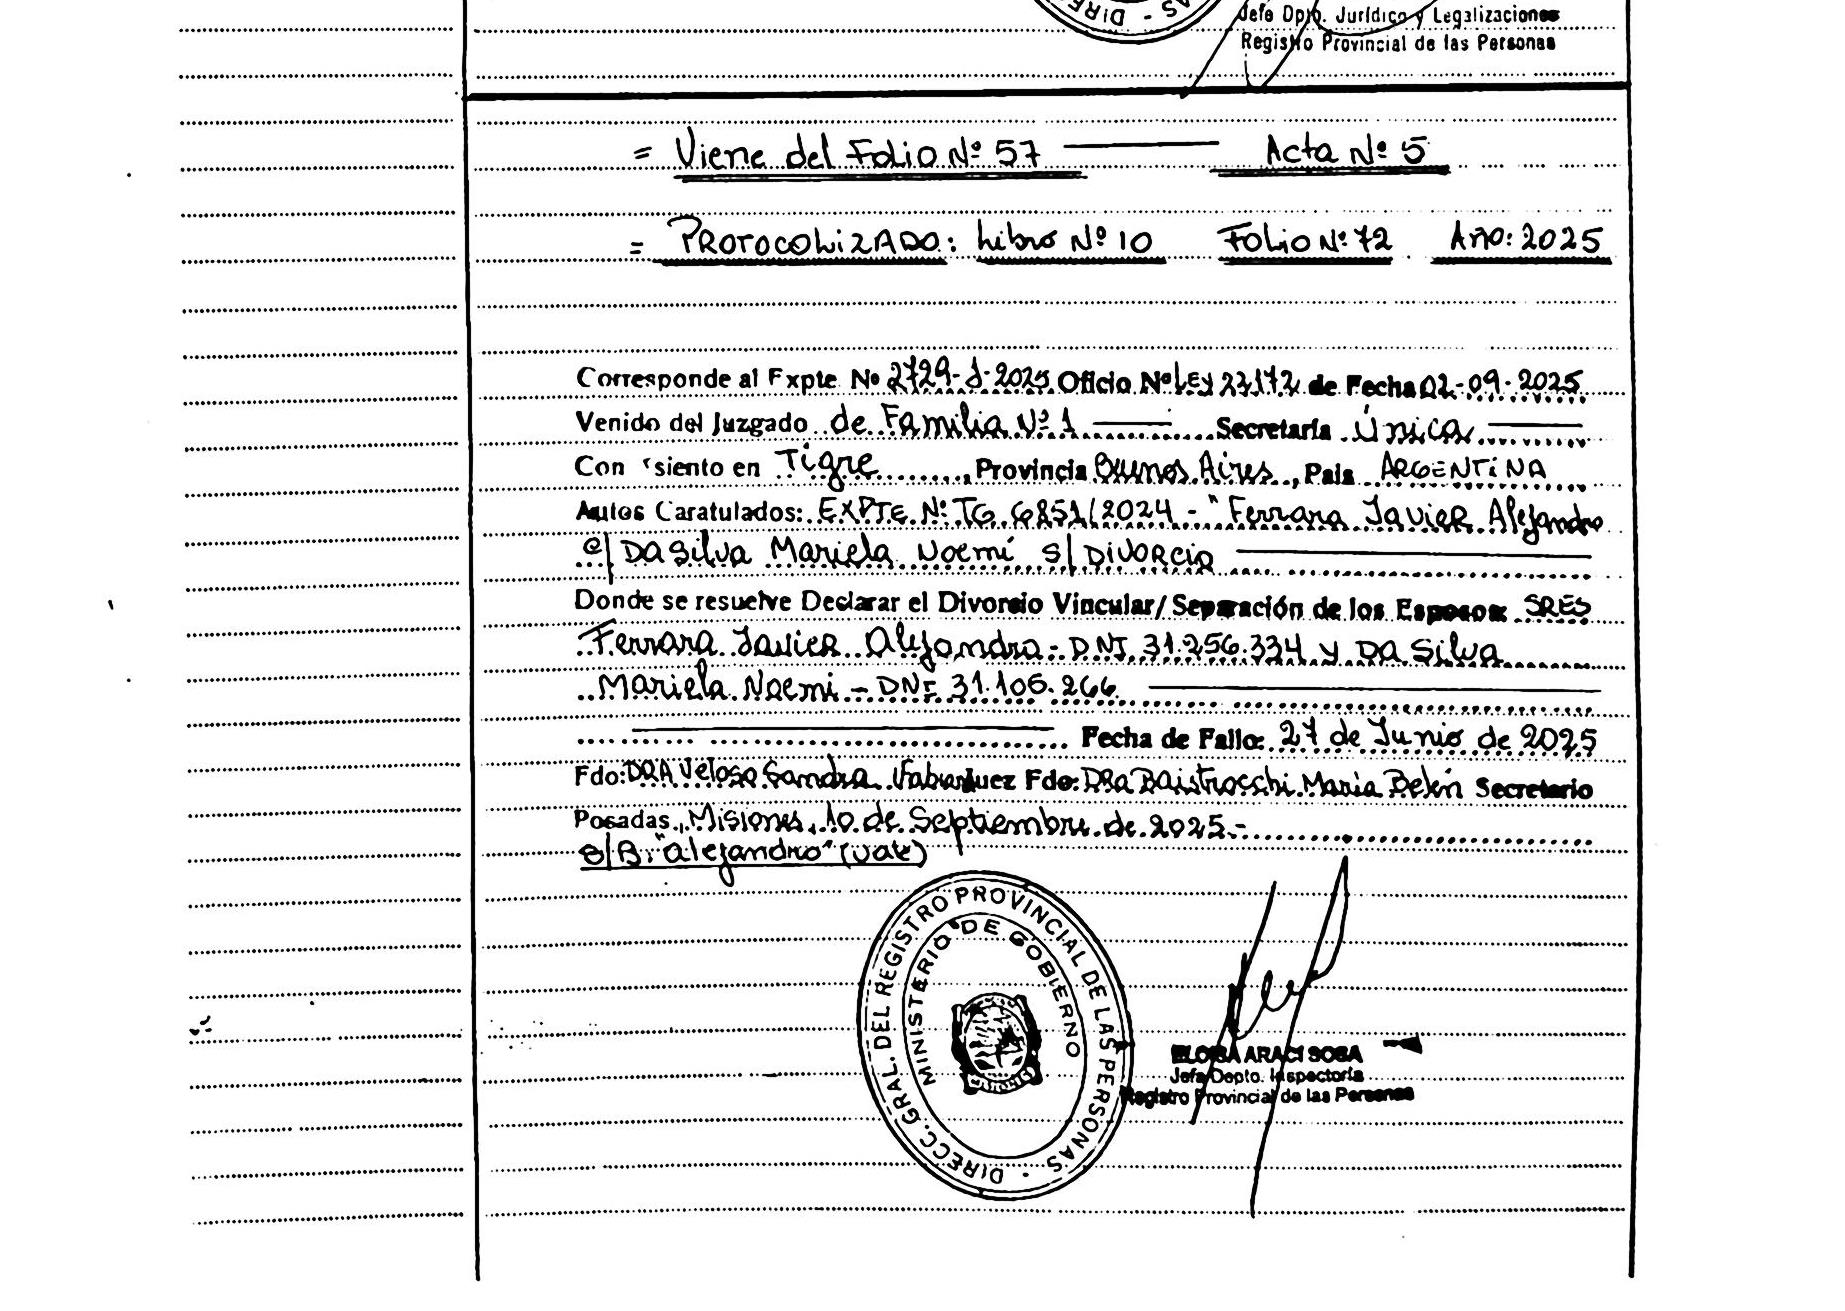 Jefe Dpto. Jurídico y Legalizaciones
Registro Provincial de las Personas
= Viene del Folio Nº 57 Acta Nº 5
= PROTOCOLIZADO: Libro Nº 10 Folio Nº 72 Año: 2025
Corresponde al Expte Nº 2729-J-2025 Oficio Nº LEY 22172 de Fecha 02-09-2025
Venido del Juzgado de Familia Nº 1 Secretaría Única
Con siento en Tigre, Provincia Buenos Aires, Pais ARGENTINA
Autos Caratulados: EXPTE Nº TG 6851/2024 - "Ferrara Javier Alejandro
c/ DA Silva Mariela Noemí s/ DIVORCIO
Donde se resuelve Declarar el Divorcio Vincular/Separación de los Esposos: SRES
Ferrara Javier Alejandro - DNI 31.256.334 y DA Silva
Mariela Noemi - DNI 31.105.266
Fecha de Fallo: 27 de Junio de 2025
Fdo: DRA Veloso Sandra Juez Fdo: DRa Baistrocchi Maria Belén Secretario
Posadas, Misiones, 10 de Septiembre de 2025.-
S/B: "Alejandro" (Vale)
DIRECC. GRAL. DEL REGISTRO PROVINCIAL DE LAS PERSONAS -
MINISTERIO DE GOBIERNO
MISIONES
ELOISA ARACI SOSA
Jefa Depto. Inspectoría
Registro Provincial de las Personas